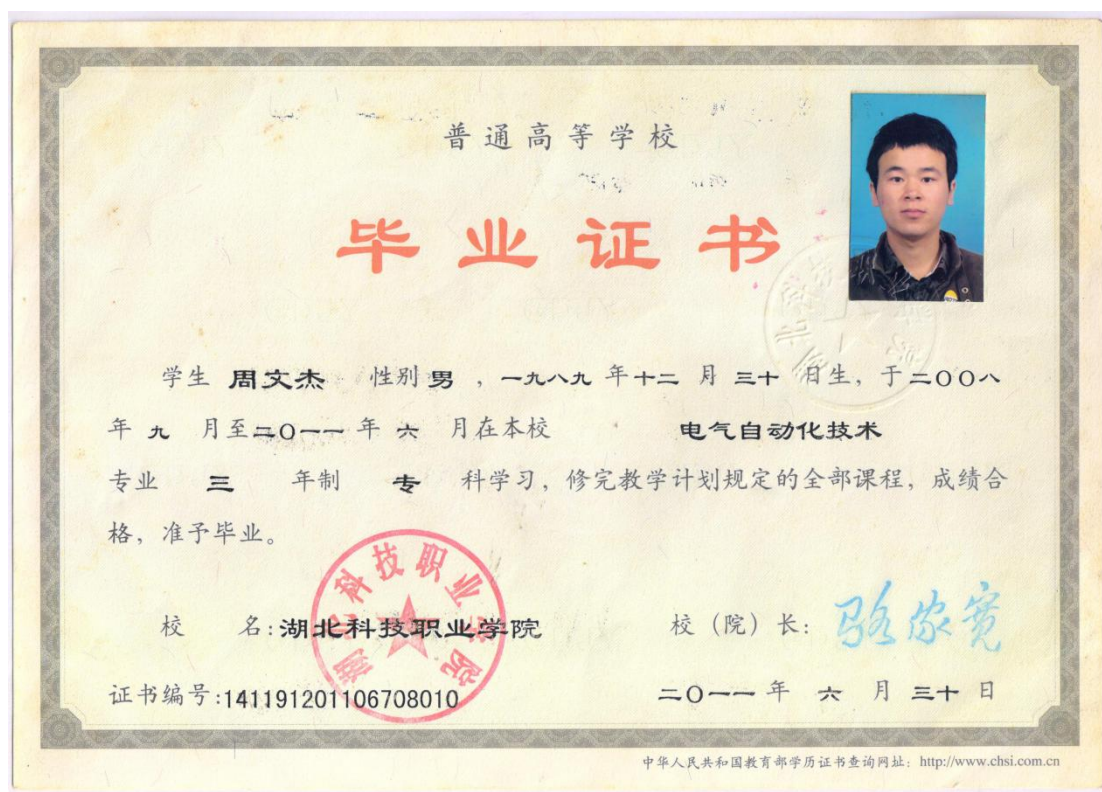 普通高等学校
毕业证书
学生 周文杰 性别 男 ，一九八九 年 十二 月 三十 日生，于 二〇〇八
年 九 月至 二〇一一 年 六 月在本校 电气自动化技术
专业 三 年制 专 科学习，修完教学计划规定的全部课程，成绩合
格，准予毕业。
校 名：湖北科技职业学院
校（院）长：骆家宽
证书编号：141191201106708010
二〇一一 年 六 月 三十 日
湖北科技职业学院
中华人民共和国教育部学历证书查询网址：http://www.chsi.com.cn